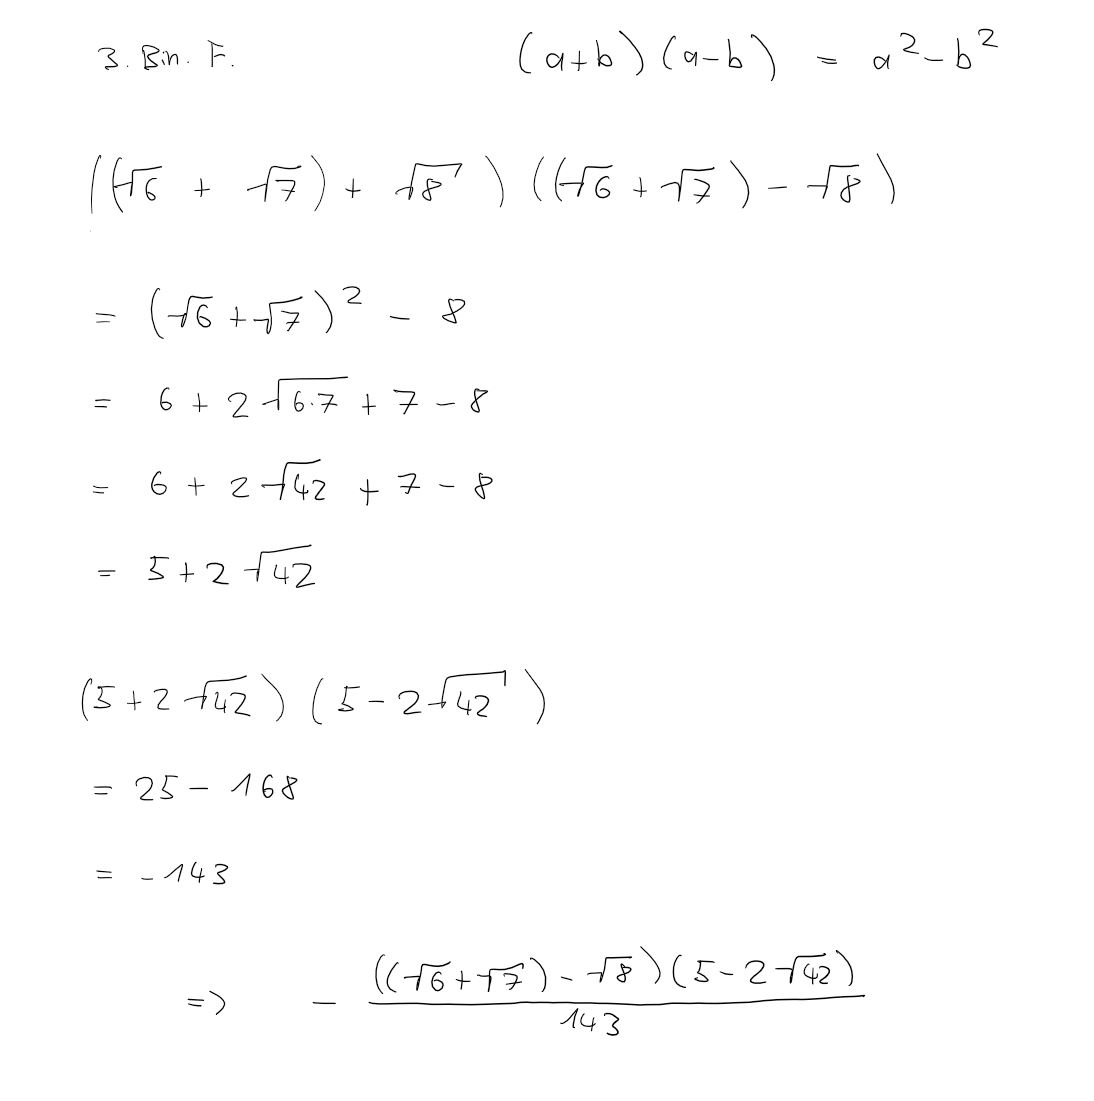 3. Bin. F. (a+b)(a-b) = a²-b²
((√6 + √7) + √8)((√6 + √7) - √8)
= (√6 + √7)² - 8
= 6 + 2√6·7 + 7 - 8
= 6 + 2√42 + 7 - 8
= 5 + 2√42
(5 + 2√42)(5 - 2√42)
= 25 - 168
= -143
=> - ((√6 + √7) - √8)(5 - 2√42)
143